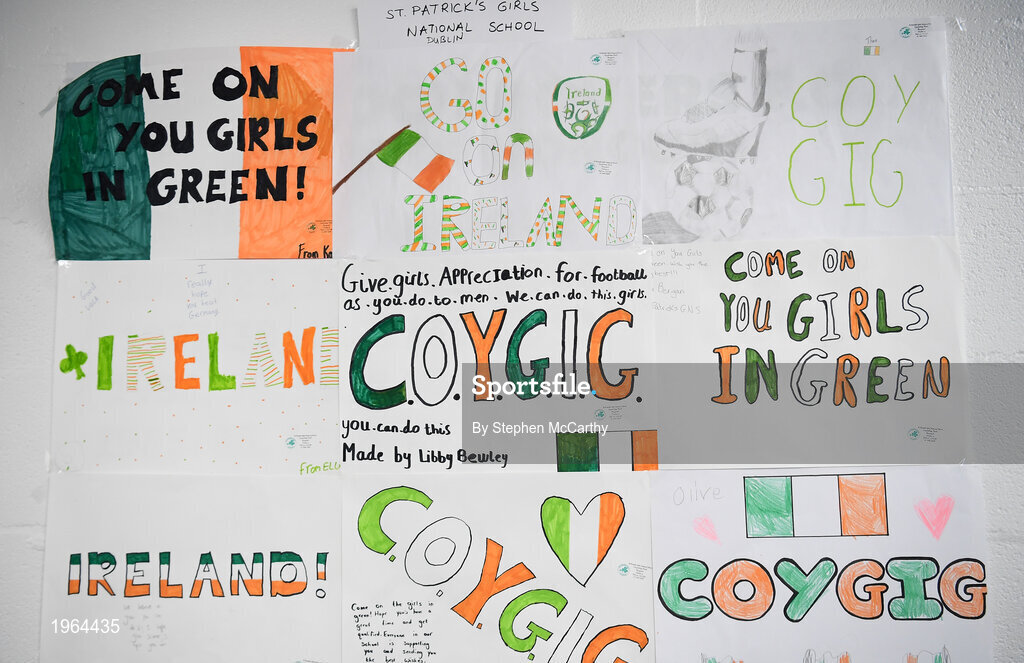 ST. PATRICK'S GIRLS
NATIONAL SCHOOL
DUBLIN
COME ON
YOU GIRLS
IN GREEN!
GO
on
IRELAND
Ireland
COY
GIG
I
Really
hope
we beat
Germany
Good
luck
IRELAND
From Ell
Give.girls.Appreciation.for.football
as.you.do.to.men. We.can.do.this.girls.
C.O.Y.G.I.G.
you.can do this
Made by Libby Bewley
COME ON
YOU GIRLS
IN GREEN
IRELAND!
C.O.Y.G.IG
Come on the girls in
green! Hope you have a
great time and get
qualified. Everyone in our
School is supporting
you and sending you
the best wishes.
Olive
COYGIG
Sportsfile
By Stephen McCarthy
1964435